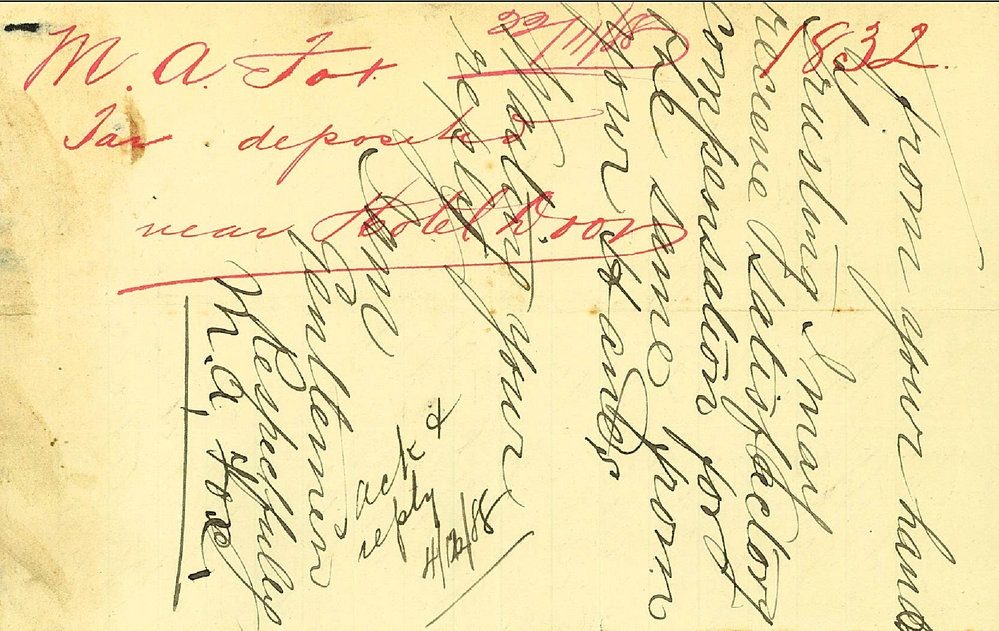 M. A. Fox 22/11/88 1832.
Tar deposited
near Hotel Door
from your hands
Trusting I may
recieve Satisfactory
compensation for
the same from
your Hands
Waiting your
reply
I am
Gentlemen
Respectfully
M. A. Fox.
ack &
reply
4/12/88